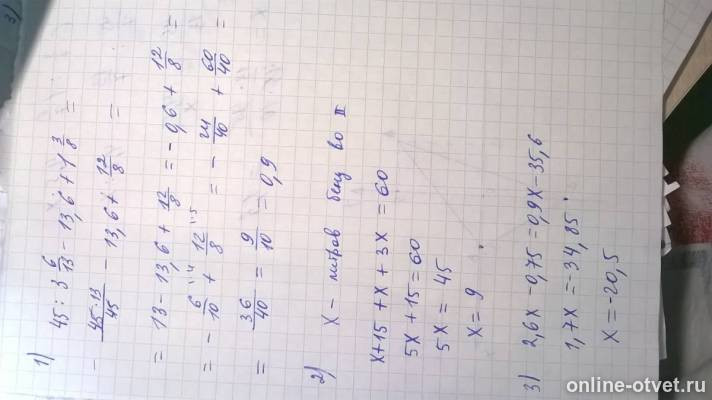 1) 45 : 3 6/13 - 13,6 + 1 3/8 =
- 45·13/45 - 13,6 + 12/8 =
= 13 - 13,6 + 12/8 = - 0,6 + 12/8 =
= - 6/10 + 12/8 = - 24/40 + 60/40 =
= 36/40 = 9/10 = 0,9
2) x - литров бенз во II
x+15 + x + 3x = 60
5x + 15 = 60
5x = 45
x = 9
3) 2,6x - 0,75 = 0,9x - 35,6
1,7x = -34,85
x = -20,5
online-otvet.ru